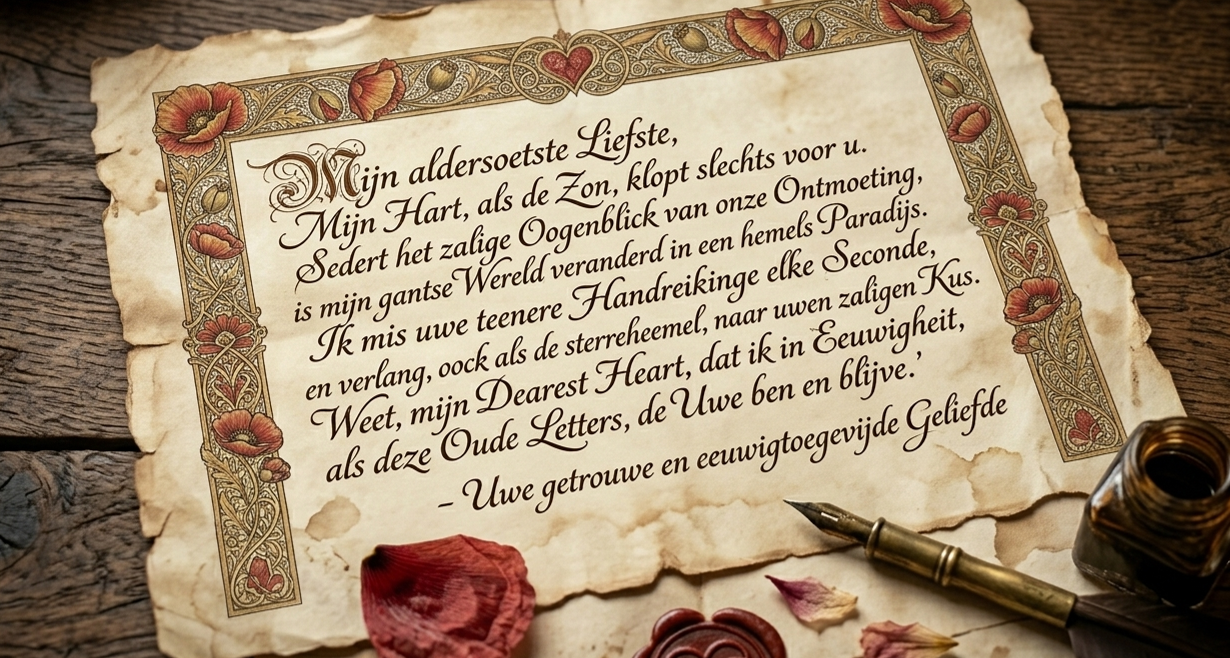 Mijn aldersoetste Liefste,
Mijn Hart, als de Zon, klopt slechts voor u.
Sedert het zalige Oogenblick van onze Ontmoeting,
is mijn gantse Wereld veranderd in een hemels Paradijs.
Ik mis uwe teenere Handreikinge elke Seconde,
en verlang, oock als de sterreheemel, naar uwen zaligen Kus.
Weet, mijn Dearest Heart, dat ik in Eeuwigheit,
als deze Oude Letters, de Uwe ben en blijve.'
– Uwe getrouwe en eeuwigtoegevijde Geliefde